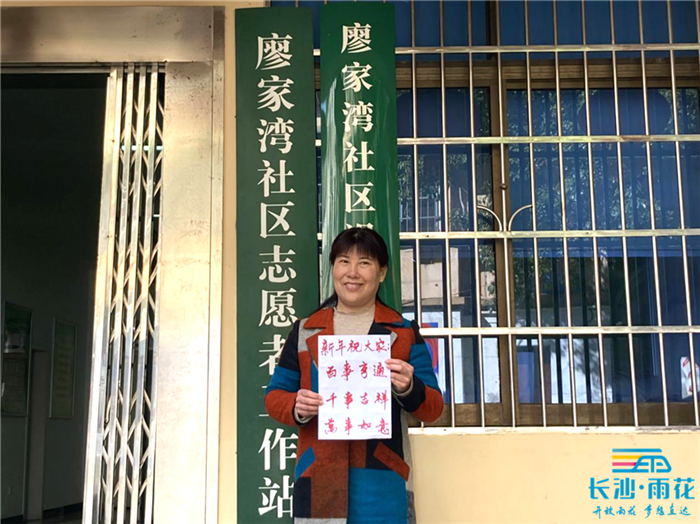 廖家湾社区志愿者工作站
廖家湾社区
新年祝大家:
百事亨通
千事吉祥
萬事如意
长沙·雨花
开放雨花 梦想直达